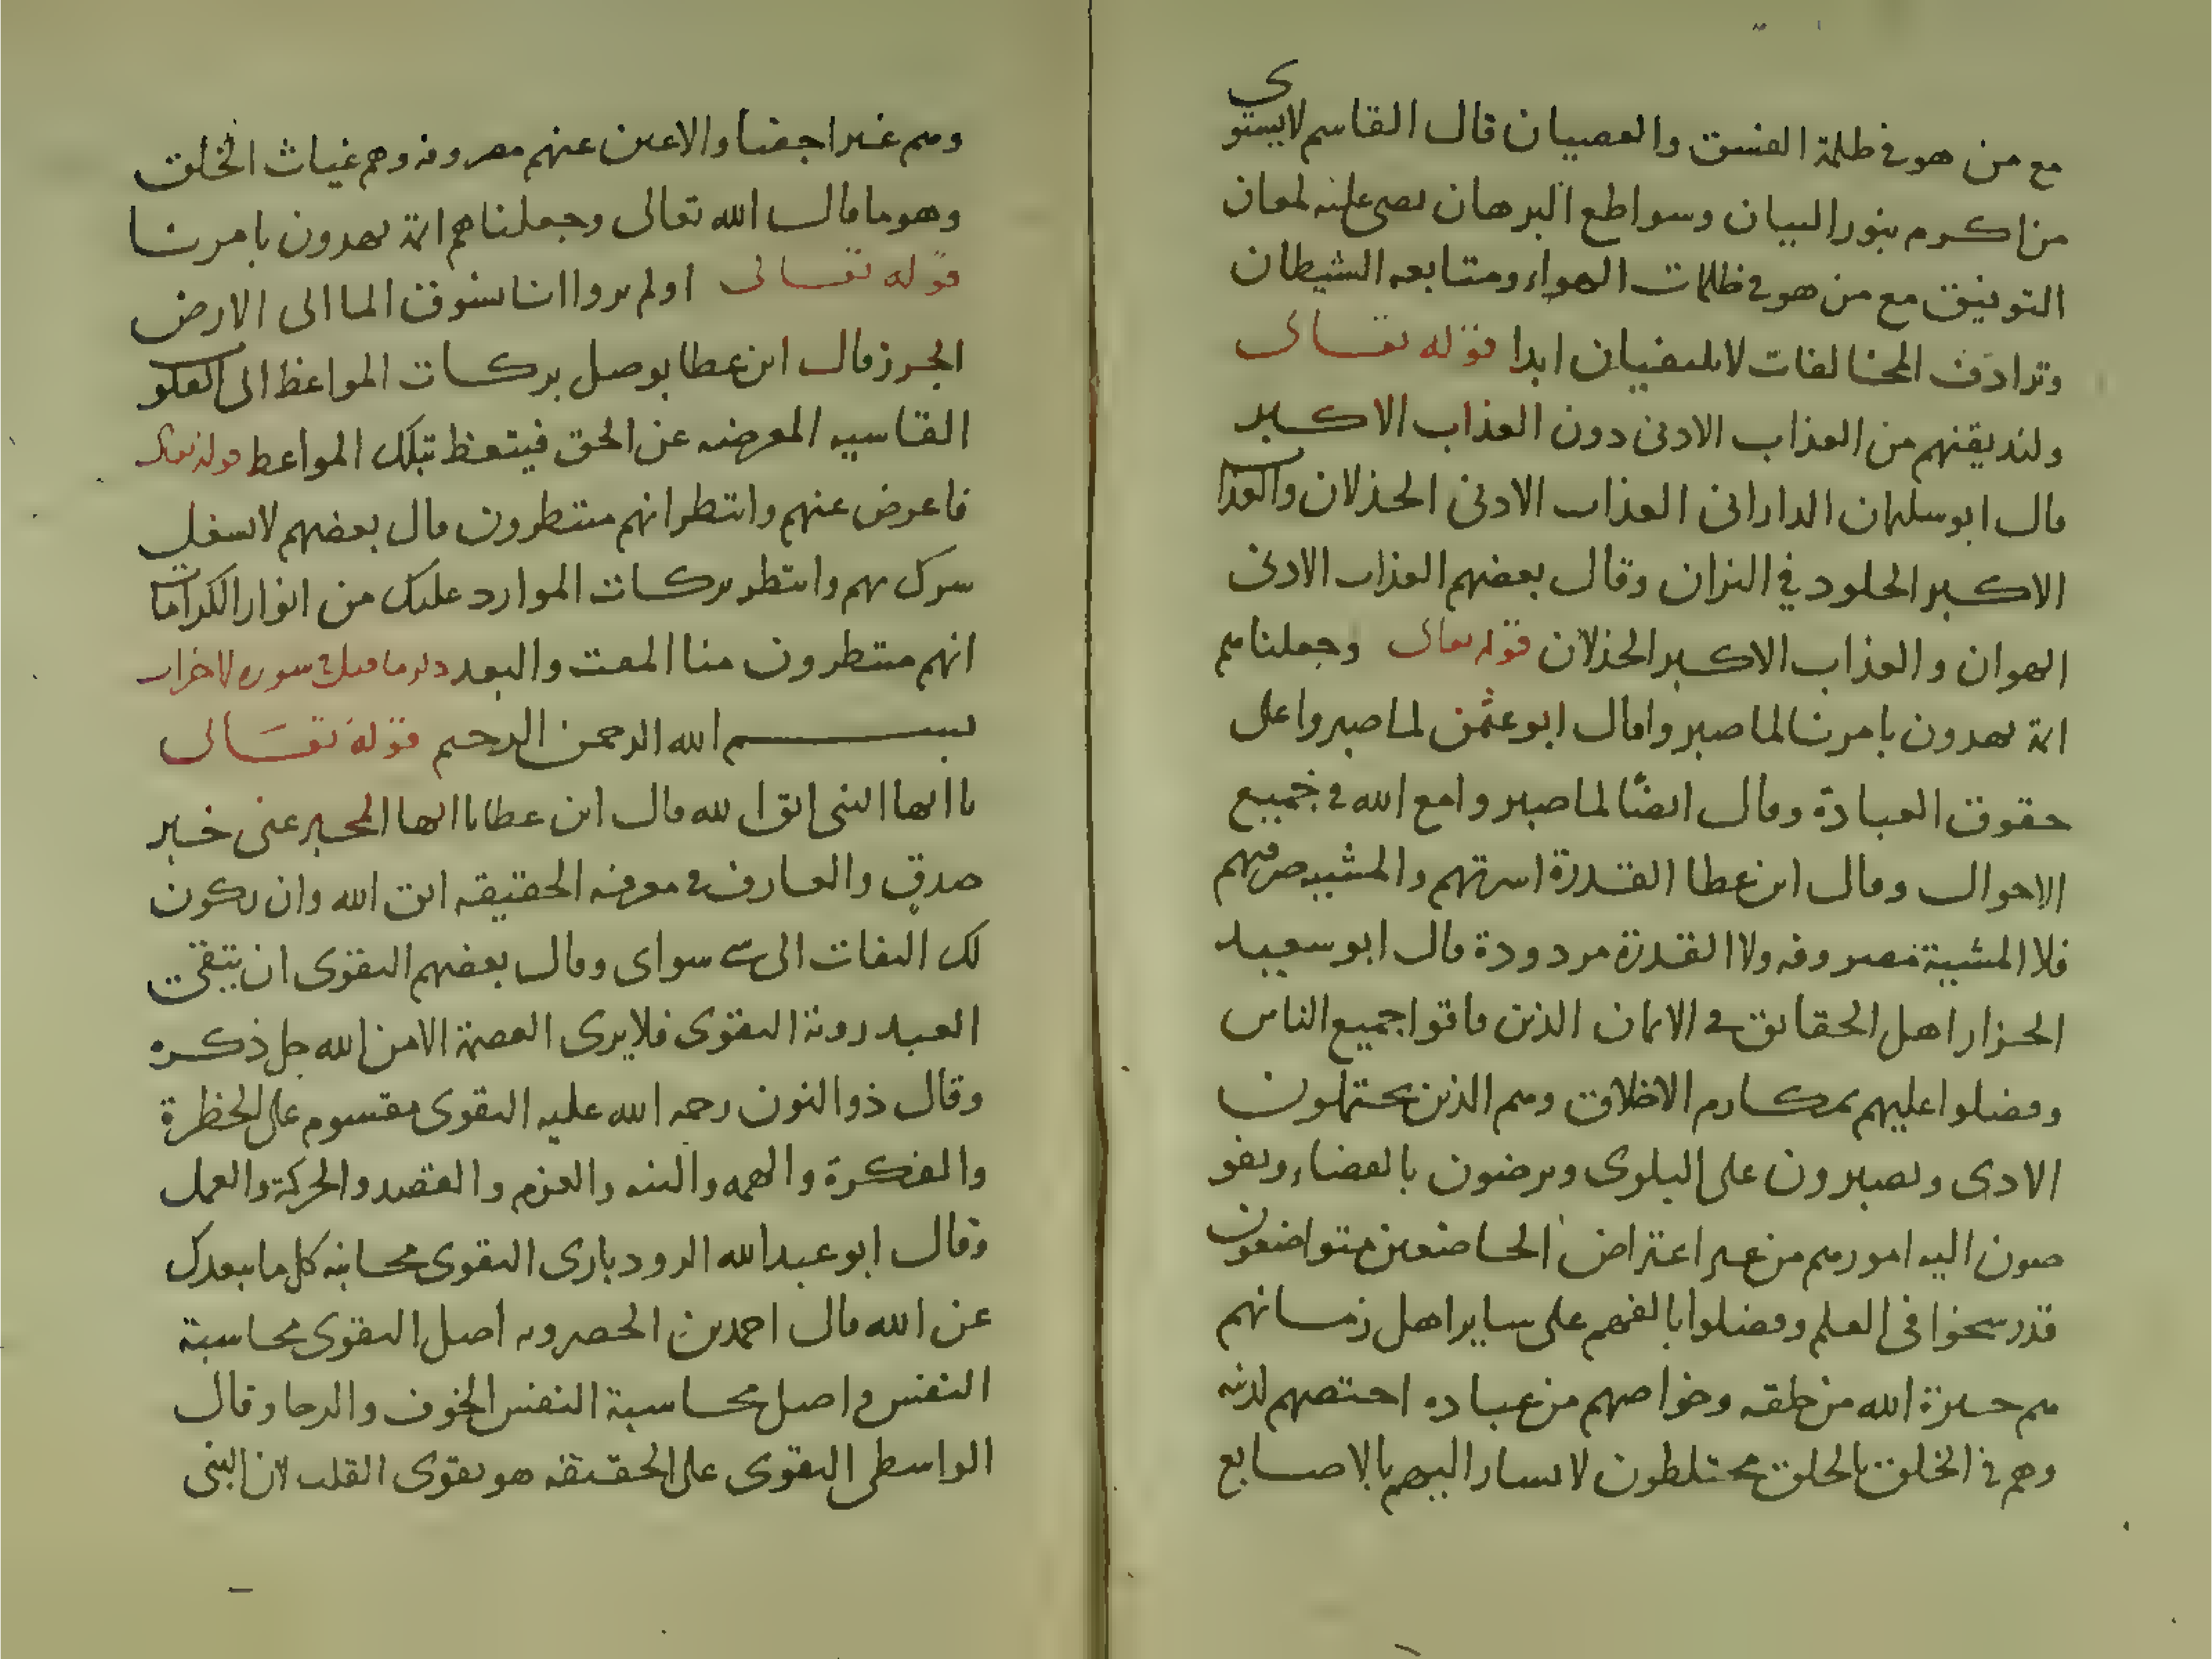 مع من هو في ظلمة الفسق والعصيان قال القاسم لا يستوي
من اكرم بنور البيان وسواطع البرهان لمعان
التوفيق مع من هو في ظلمات الهواء ومتابعه الشيطان
وترادف المخالفات لا يلتقيان ابدا قوله تعالى
ولنذيقنهم من العذاب الادنى دون العذاب الاكبر
قال ابو سليمان الداراني العذاب الادنى الخذلان والعذاب
الاكبر الخلود في النيران وقال بعضهم العذاب الادنى
الهوان والعذاب الاكبر الخذلان قوله تعالى وجعلنا منهم
ائمة يهدون بامرنا لما صبروا قال ابو عثمن لما صبروا على
حقوق العبادة وقال ايضًا لما صبروا مع الله في جميع
الاحوال وقال ابن عطا القدرة اسرتهم والمشيه صرفتهم
فلا المشية مصروفه ولا القدرة مردودة قال ابو سعيد
الخزار اهل الحقائق في الايمان الذين فاقوا جميع الناس
وفضلوا عليهم بمكارم الاخلاق وهم الذين يحتملون
الاذى ويصبرون على البلوى ويرضون بالقضاء ويفو
ضون اليه امورهم من غير اعتراض الخاضعين متواضعون
قد رسخوا في العلم وفضلوا بالفهم على ساير اهل زمانهم
هم خيرة الله من خلقه وخواصهم من عباده اختصهم لدينه
وهم في الخلق بالخلق مختلطون لا يشار اليهم بالاصابع
وهم غير اجفيا والاعين عنهم مصروفه وهم غياث الخلق
وهو ما قال الله تعالى وجعلناهم ائمة يهدون بامرنا
قوله تعالى اولم يروا انا نسوق الما الى الارض
الجرز قال ابن عطا يوصل بركات المواعظ الى القلوب
القاسيه المعرضه عن الحق فيتعظ بتلك المواعظ قوله تعالى
فاعرض عنهم وانتظر انهم منتظرون قال بعضهم لا تشغل
سرك بهم وانتظر بركات الموارد عليك من انوار الكرامات
انهم منتظرون منا المقت والبعد ذكر ما قيل في سوره الاحزاب
بسم الله الرحمن الرحيم قوله تعالى
يا ايها النبي اتق الله قال ابن عطا يا ايها المخبر عني خبر
صدق والعارف في معرفه الحقيقه اتق الله وان يكون
لك التفات الى شي سواي وقال بعضهم التقوى ان يتقي
العبد روية التقوى فلا يرى العصمة الا من الله جل ذكره
وقال ذو النون رحمه الله عليه التقوى مقسوم على الخظرة
والفكرة والهمه والنيه والعزم والقصد والحركة والعمل
وقال ابو عبد الله الرودباري التقوى مجانبه كل ما يبعدك
عن الله قال احمد بن الخضرويه اصل التقوى محاسبة
النفس واصل محاسبة النفس الخوف والرجا وقال
الواسطي التقوى على الحقيقه هو تقوى القلب لان النبي